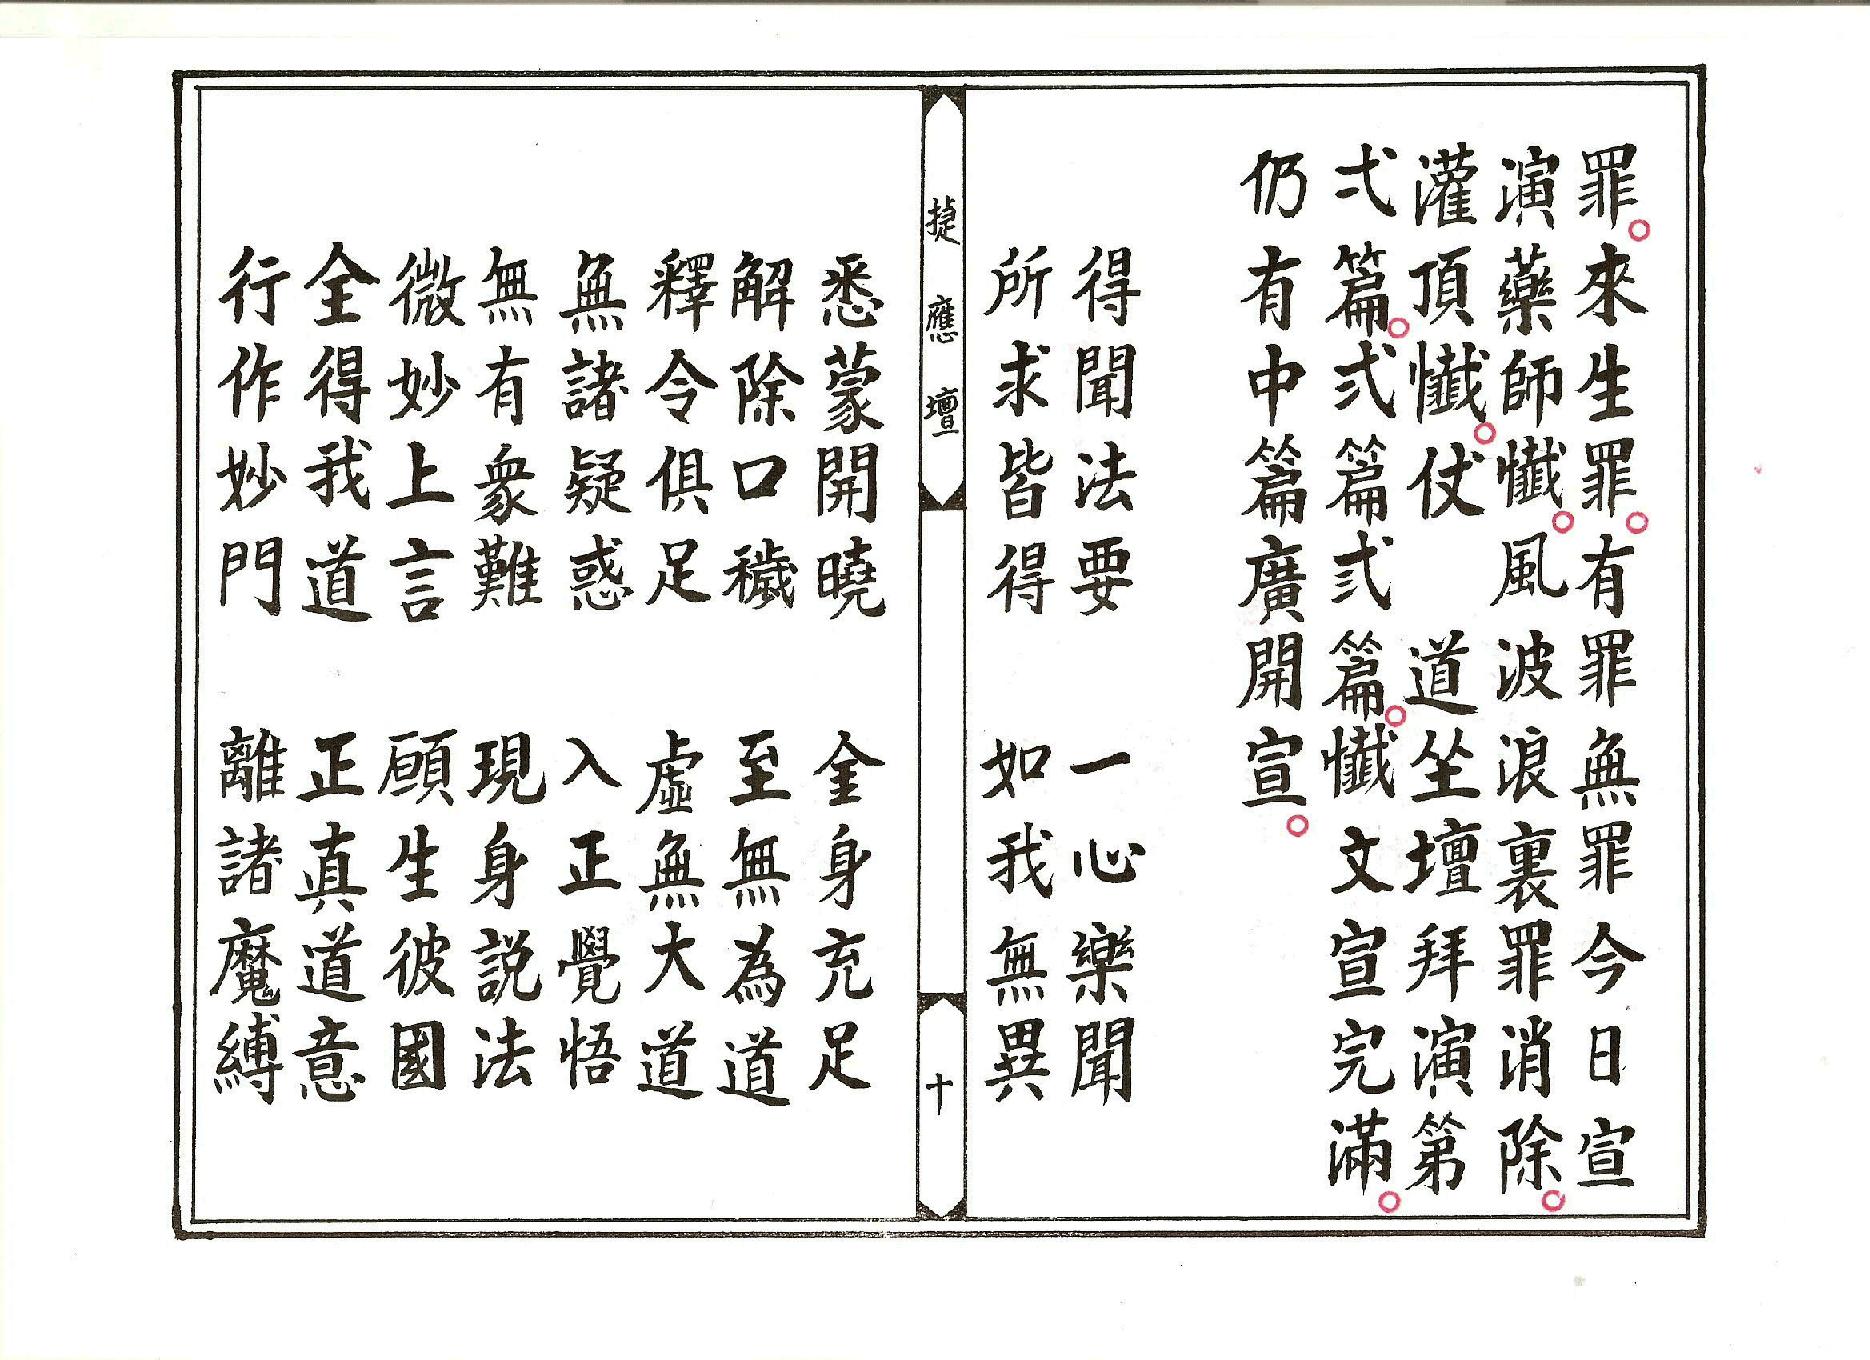 罪。來生罪。有罪無罪今日宣
演藥師懺。風波浪裏罪消除。
灌頂懺。仗　道坐壇拜演第
弍篇。弍篇弍篇。懺文宣完滿。
仍有中篇廣開宣。
得聞法要　一心樂聞
所求皆得　如我無異
捷應壇
十
悉蒙開曉　金身充足
解除口穢　至無為道
釋令俱足　虛無大道
無諸疑惑　入正覺悟
無有衆難　現身説法
微妙上言　願生彼國
全得我道　正真道意
行作妙門　離諸魔縛